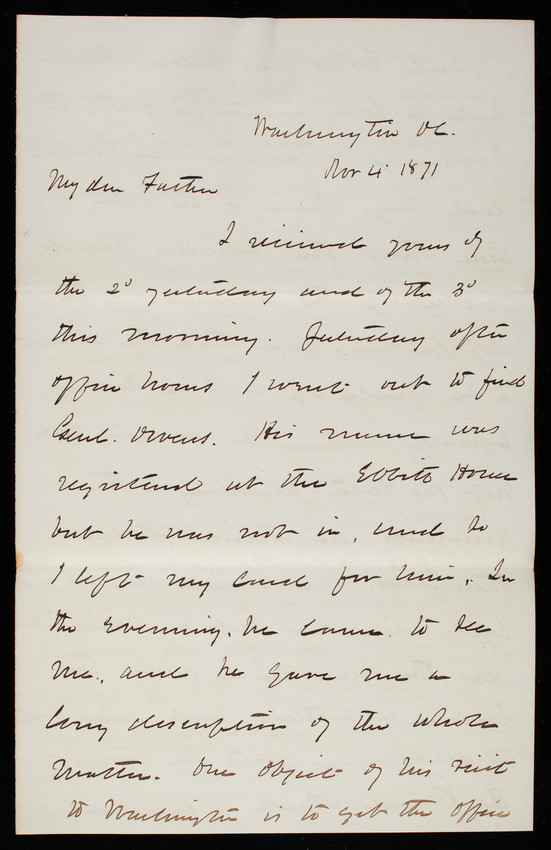 Washington DC.
Nov 4 1871
My dear Father
I received yours of
the 2d yesterday and of the 3d
this morning. Yesterday after
office hours I went out to find
Genl. Owens. His name was
registered at the Ebbitt House
but he was not in, and so
I left my card for him. In
the evening. he came to see
me, and he gave me a
long description of the whole
matter. One object of his visit
to Washington is to get the office